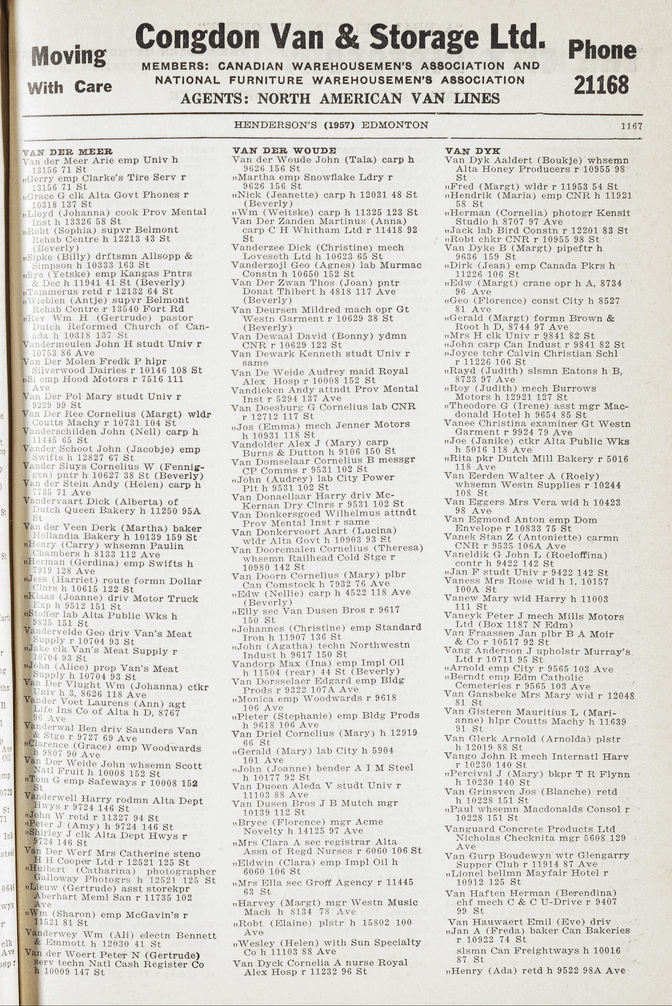 Moving
With Care
Congdon Van & Storage Ltd.
MEMBERS: CANADIAN WAREHOUSEMEN'S ASSOCIATION AND
NATIONAL FURNITURE WAREHOUSEMEN'S ASSOCIATION
AGENTS: NORTH AMERICAN VAN LINES
Phone
21168
HENDERSON'S (1957) EDMONTON
1167
VAN DER MEER
Van der Meer Arie emp Univ h
13156 71 St
„Gerry emp Clarke's Tire Serv r
13156 71 St
„Grace G clk Alta Govt Phones r
10318 137 St
„Lloyd (Johanna) cook Prov Mental
Inst h 13326 58 St
„Robt (Sophia) supvr Belmont
Rehab Centre h 12213 43 St
(Beverly)
„Sipke (Billy) drftsmn Allsopp &
Simpson h 10333 163 St
„Sye (Yetske) emp Kangas Pntrs
& Dec h 11941 41 St (Beverly)
„Tammerus retd r 12132 64 St
„Wiebien (Antje) supvr Belmont
Rehab Centre r 13540 Fort Rd
„Rev Wm H (Gertrude) pastor
Dutch Reformed Church of Can-
ada h 10318 137 St
Vandermeulen John H studt Univ r
10753 86 Ave
Van Der Molen Fredk P hlpr
Silverwood Dairies r 10146 108 St
„Si emp Hood Motors r 7516 111
Ave
Van Der Pol Mary studt Univ r
9229 99 St
Van Der Ree Cornelius (Margt) wldr
Coutts Machy r 10731 104 St
Vanderschilden John (Nell) carp h
11445 65 St
Vander Schoot John (Jacobje) emp
Swifts h 12827 67 St
Vander Sluys Cornelius W (Fennig-
gen) pntr h 10627 38 St (Beverly)
Van der Stein Andy (Helen) carp h
7735 71 Ave
Vandervaart Dick (Alberta) of
Dutch Queen Bakery h 11250 95A
St
Van der Veen Derk (Martha) baker
Hollandia Bakery h 10139 159 St
„Henry (Carry) whsemn Paulin
Chambers h 8133 112 Ave
„Herman (Gerdina) emp Swifts h
7919 128 Ave
„Jess (Harriet) route formn Dollar
Clnrs h 10615 122 St
„Klaas (Joanne) driv Motor Truck
Exp h 9512 151 St
„Stoffer lab Alta Public Wks h
9835 151 St
Vandervelde Geo driv Van's Meat
Supply r 10704 93 St
„Jake clk Van's Meat Supply r
10704 93 St
„John (Alice) prop Van's Meat
Supply h 10704 93 St
Van Der Vlught Wm (Johanna) ctkr
Univ h 3, 8626 118 Ave
Vander Voet Laurens (Ann) agt
Life Ins Co of Alta h D, 8767
96 Ave
Vanderwal Ben driv Saunders Van
& Stge r 9727 69 Ave
„Clarence (Grace) emp Woodwards
h 9807 90 Ave
Van Der Weide John whsemn Scott
Natl Fruit h 10008 152 St
„Tom G emp Safeways r 10008 152
St
Vanderwell Harry rodmn Alta Dept
Hwys r 9724 146 St
„John W retd r 11327 94 St
„Peter J (Amy) h 9724 146 St
„Shirley J clk Alta Dept Hwys r
9724 146 St
Van Der Werf Mrs Catherine steno
H H Cooper Ltd r 12521 125 St
„Huibert (Catharina) photographer
Galloway Photogrs h 12521 125 St
„Lieuw (Gertrude) asst storekpr
Aberhart Meml San r 11735 102
Ave
„Wm (Sharon) emp McGavin's r
11521 81 St
Vanderwey Wm (Ali) electn Bennett
& Emmott h 12030 41 St
Van der Woert Peter N (Gertrude)
serv techn Natl Cash Register Co
h 10009 147 St
VAN DER WOUDE
Van der Woude John (Tala) carp h
9626 156 St
„Martha emp Snowflake Ldry r
9626 156 St
„Nick (Jeanette) carp h 12031 48 St
(Beverly)
„Wm (Weitske) carp h 11325 123 St
Van Der Zanden Martinus (Anna)
carp C H Whitham Ltd r 11418 92
St
Vanderzee Dick (Christine) mech
Loveseth Ltd h 10623 65 St
Vanderzojl Geo (Agnes) lab Murmac
Constn h 10650 152 St
Van Der Zwan Thos (Joan) pntr
Donat Thibert h 4818 117 Ave
(Beverly)
Van Deursen Mildred mach opr Gt
Westn Garment r 10629 38 St
(Beverly)
Van Dewaal David (Bonny) ydmn
CNR r 10629 122 St
Van Dewark Kenneth studt Univ r
same
Van De Weide Audrey maid Royal
Alex Hosp r 10008 152 St
Vandieken Andy attndt Prov Mental
Inst r 5294 137 Ave
Van Doesburg G Cornelius lab CNR
r 12712 117 St
„Jos (Emma) mech Jenner Motors
h 10931 118 St
Vandolder Alex J (Mary) carp
Burns & Dutton h 9106 150 St
Van Domselaar Cornelius B messgr
CP Comms r 9531 102 St
„John (Audrey) lab City Power
Plt h 9531 102 St
Van Donaellaar Harry driv Mc-
Kernan Dry Clnrs r 9531 102 St
Van Donkersgoed Wilhelmus attndt
Prov Mental Inst r same
Van Donkervoort Aart (Lucina)
wldr Alta Govt h 10903 93 St
Van Dooremalen Cornelius (Theresa)
whsemn Railhead Cold Stge r
10980 142 St
Van Doorn Cornelius (Mary) plbr
Can Comstock h 7932 76 Ave
„Edw (Nellie) carp h 4522 118 Ave
(Beverly)
„Elly sec Van Dusen Bros r 9617
150 St
„Johannes (Christine) emp Standard
Iron h 11907 136 St
„John (Agatha) techn Northwestn
Indust h 9617 150 St
Vandorp Max (Ina) emp Impl Oil
h 11504 (rear) 44 St (Beverly)
Van Dorsselaer Edgard emp Bldg
Prods r 9322 107A Ave
„Monica emp Woodwards r 9618
106 Ave
„Pieter (Stephanie) emp Bldg Prods
h 9618 106 Ave
Van Driel Cornelius (Mary) h 12919
66 St
„Gerald (Mary) lab City h 5904
101 Ave
„John (Joanne) bender A I M Steel
h 10177 92 St
Van Duoen Aleda V studt Univ r
11103 88 Ave
Van Dusen Bros J B Mutch mgr
10139 112 St
„Bryce (Florence) mgr Acme
Novelty h 14125 97 Ave
„Mrs Clara A sec registrar Alta
Assn of Regd Nurses r 6060 106 St
„Eldwin (Clara) emp Impl Oil h
6060 106 St
„Mrs Ella sec Groff Agency r 11445
63 St
„Harvey (Margt) mgr Westn Music
Mach h 8134 78 Ave
„Robt (Elaine) plstr h 15802 100
Ave
„Wesley (Helen) with Sun Specialty
Co h 11103 88 Ave
Van Dyck Cornelia A nurse Royal
Alex Hosp r 11232 96 St
VAN DYK
Van Dyk Aaldert (Boukje) whsemn
Alta Honey Producers r 10955 98
St
„Fred (Margt) wldr r 11953 54 St
„Hendrik (Maria) emp CNR h 11921
58 St
„Herman (Cornelia) photogr Kensit
Studio h 8707 97 Ave
„Jack lab Bird Constn r 12201 83 St
„Robt chkr CNR r 10955 98 St
Van Dyke B (Margt) pipeftr h
9636 159 St
„Dirk (Jean) emp Canada Pkrs h
11226 106 St
„Edw (Margt) crane opr h A, 8734
96 Ave
„Geo (Florence) const City h 8527
81 Ave
„Gerald (Margt) formn Brown &
Root h D, 8744 97 Ave
„Mrs H clk Univ r 9841 82 St
„John carp Can Indust r 9841 82 St
„Joyce tchr Calvin Christian Schl
r 11226 106 St
„Rayd (Judith) slsmn Eatons h B,
8723 97 Ave
„Roy (Judith) mech Burrows
Motors h 12921 127 St
„Theodore G (Irene) asst mgr Mac-
donald Hotel h 9654 85 St
Vanee Christina examiner Gt Westn
Garment r 9924 79 Ave
„Joe (Janike) ctkr Alta Public Wks
h 5016 118 Ave
„Rita pkr Dutch Mill Bakery r 5016
118 Ave
Van Eerden Walter A (Roely)
whsemn Westn Supplies r 10244
108 St
Van Eggers Mrs Vera wid h 10423
98 Ave
Van Egmond Anton emp Dom
Envelope r 10833 75 St
Vanek Stan Z (Antoniette) carmn
CNR r 9535 106A Ave
Vaneldik G John L (Roeloffina)
contr h 9422 142 St
„Jan F studt Univ r 9422 142 St
Vaness Mrs Rose wid h 1, 10157
100A St
Vanew Mary wid Harry h 11003
111 St
Vaneyk Peter J mech Mills Motors
Ltd (Box 1187 N Edm)
Van Fraassen Jan plbr B A Moir
& Co r 10517 92 St
Vang Anderson J upholstr Murray's
Ltd r 10711 95 St
„Arnold emp City r 9565 103 Ave
„Berndt emp Edm Catholic
Cemeteries r 9565 103 Ave
Van Gansbeke Mrs Mary wid r 12048
81 St
Van Gisteren Mauritius L (Mari-
anne) hlpr Coutts Machy h 11639
91 St
Van Glerk Arnold (Arnolda) plstr
h 12019 88 St
Vango John R mech Internatl Harv
r 10230 140 St
„Percival J (Mary) bkpr T R Flynn
h 10230 140 St
Van Grinsven Jos (Blanche) retd
h 10228 151 St
„Paul whsemn Macdonalds Consol r
10228 151 St
Vanguard Concrete Products Ltd
Nicholas Checknita mgr 5608 129
Ave
Van Gurp Boudewyn wtr Glengarry
Supper Club r 11914 87 Ave
„Lionel bellmn Mayfair Hotel r
10912 125 St
Van Haften Herman (Berendina)
chf mech C & C U-Drive r 9407
99 St
Van Hauwaert Emil (Eve) driv
„Jan A (Freda) baker Can Bakeries
r 10922 74 St
slsmn Can Freightways h 10016
87 St
„Henry (Ada) retd h 9522 98A Ave